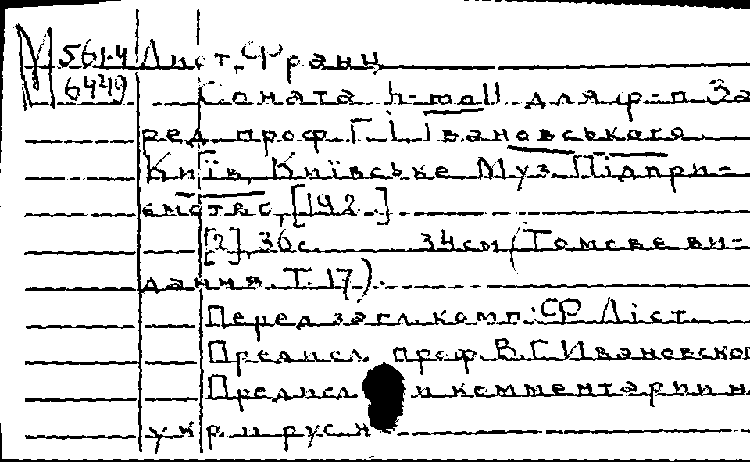 М 561.4 Лист, Франц
6449 Соната h-moll для ф-п. За
ред. проф. Г. І. Івановського
Київ, Київське Муз. Підпри-
ємство, [192.]
[2], 36 с. 34 см (Томове ви-
дання. Т. 17).
Перед загл. комп: Ф Ліст.
Предисл. проф. В. Г. Ивановского
Предисл. и комментарии н
укр. и русск